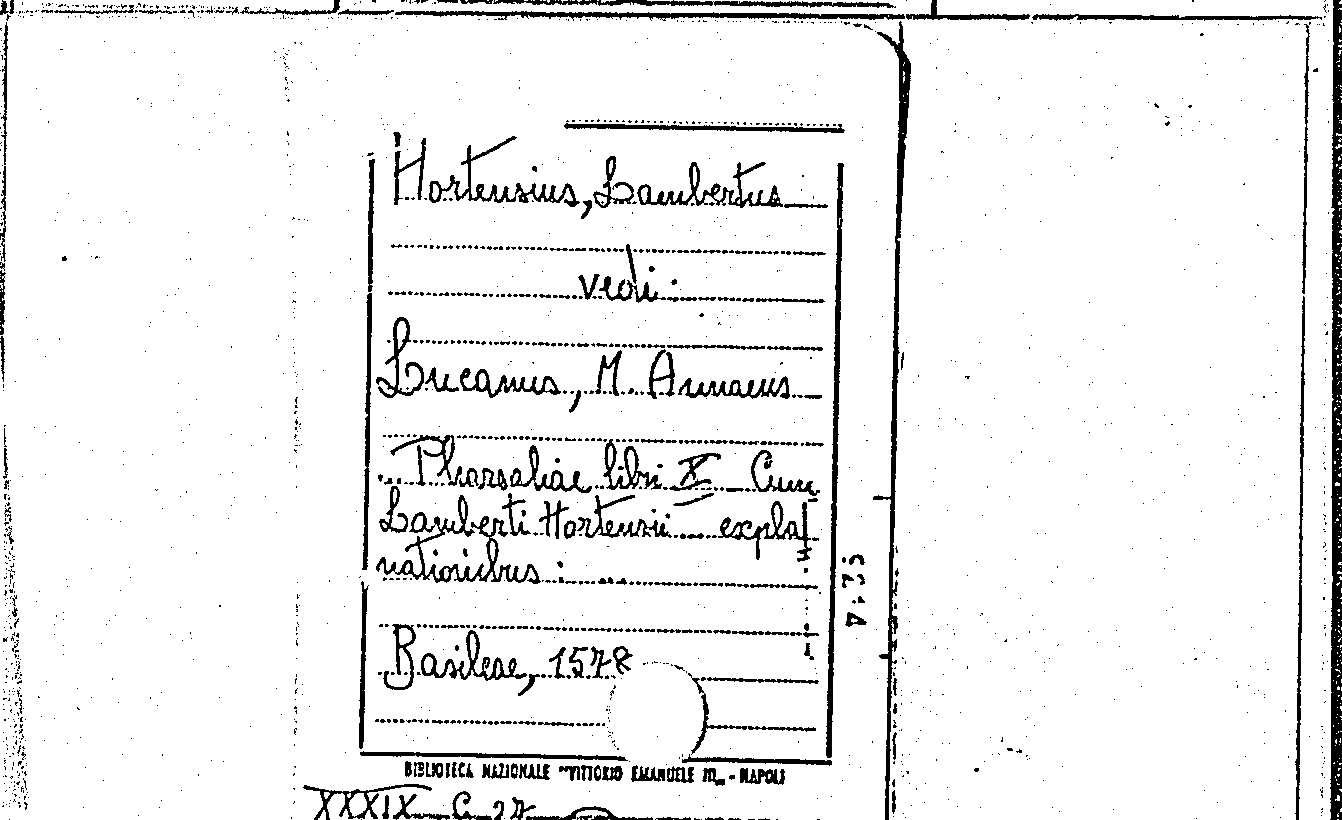 Hortensius, Lambertus
vedi:
Lucanus, M. Annaeus
... Pharsaliae libri X_ Cum
Lamberti Hortensii ... expla
nationibus: ...
Basileae, 1578
BIBLIOTECA NAZIONALE "VITTORIO EMANUELE III„ - NAPOLI
XXXIX G 27